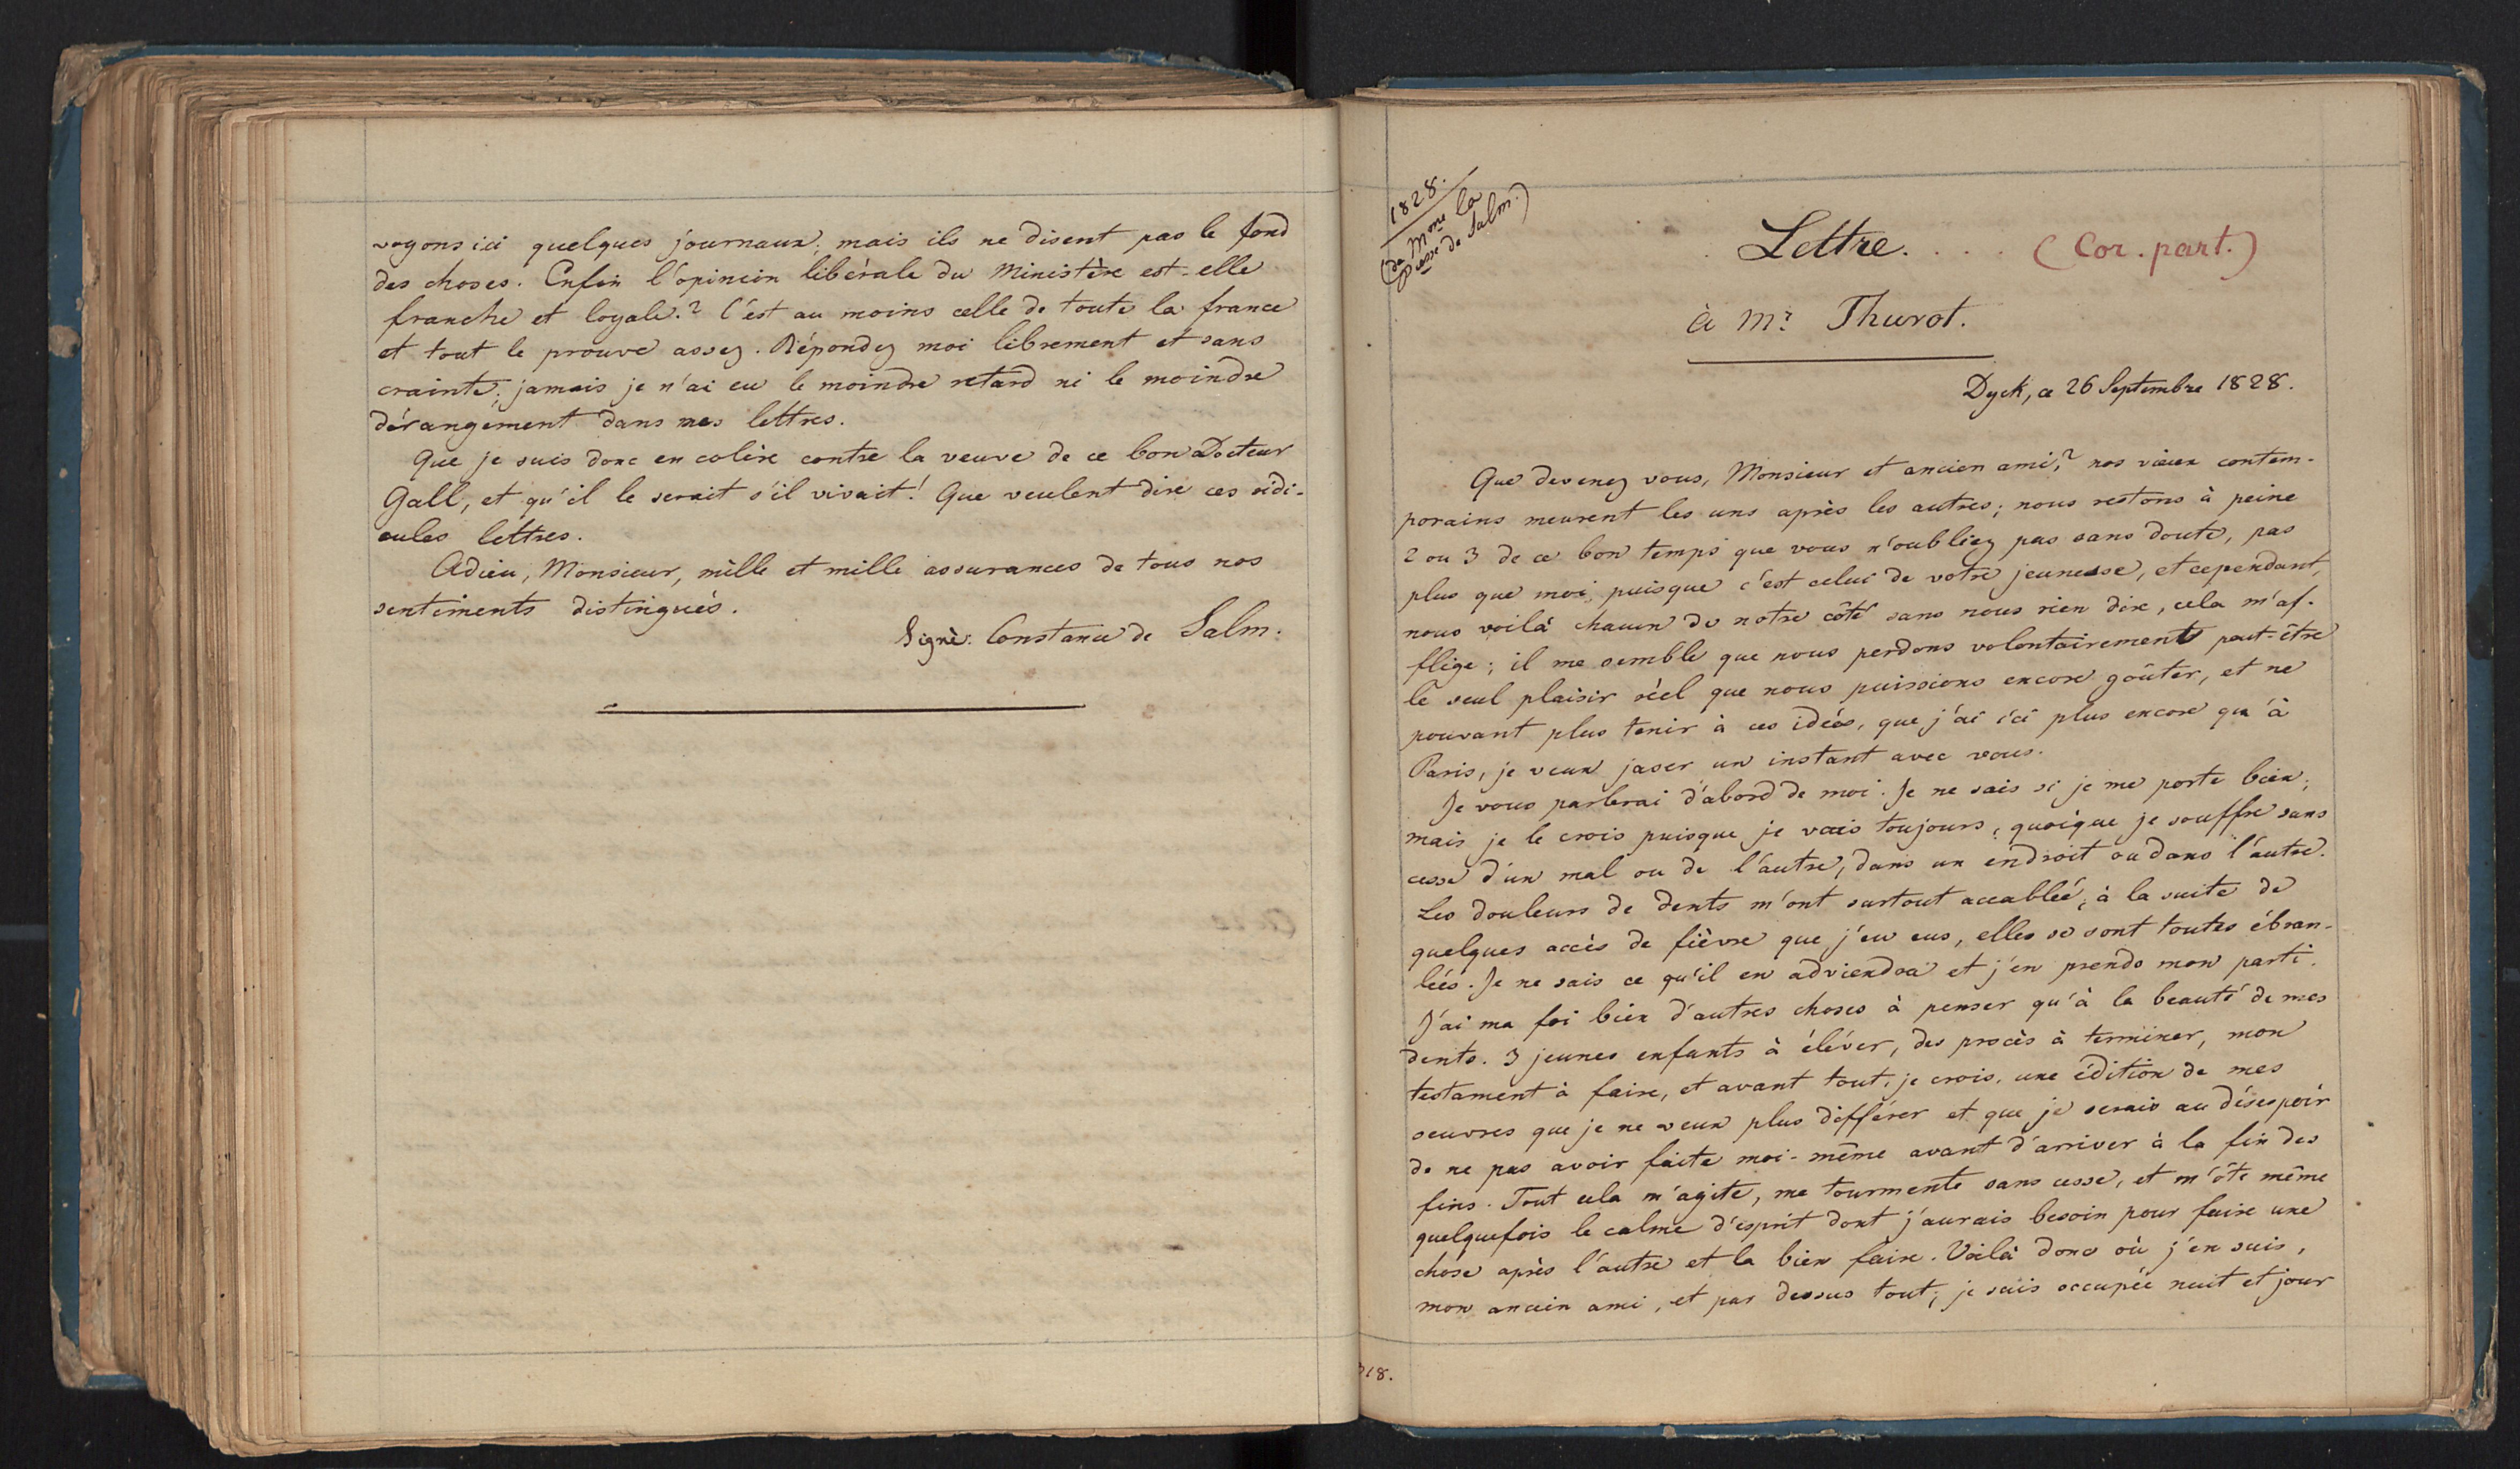 voyons ici quelques journaux; mais ils ne disent pas le fond
des choses. Enfin l'opinion libérale du Ministère est-elle
franche et loyale.? C'est au moins celle de toute la france
et tout le prouve assez. Répondez moi librement et sans
crainte; jamais je n'ai eu le moindre retard ni le moindre
dérangement dans mes lettres.
Que je suis donc en colère contre la veuve de ce bon Docteur
Gall, et qu'il le serait s'il vivait! Que veulent dire ces ridi-
cules lettres.
Adieu, Monsieur, mille et mille assurances de tous nos
sentiments distingués.
Signé: Constance de Salm.
1828.
(de Mme la
Pcesse de Salm.)
Lettre. . . . (Cor. part.)
à Mr. Thurot.
Dyck, ce 26 Septembre 1828.
Que devenez vous, Monsieur et ancien ami,? nos vieux contem-
porains meurent les uns après les autres; nous restons à peine
2 ou 3 de ce bon temps que vous n'oubliez pas sans doute, pas
plus que moi, puisque c'est celui de votre jeunesse, et cependant,
nous voilà chacun de notre côté sans nous rien dire, cela m'af-
flige; il me semble que nous perdons volontairement peut-être
le seul plaisir réel que nous puissions encore goûter, et ne
pouvant plus tenir à ces idées, que j'ai ici plus encore qu'à
Paris, je veux jaser un instant avec vous.
Je vous parlerai d'abord de moi. Je ne sais si je me porte bien;
mais je le crois puisque je vais toujours, quoique je souffre sans
cesse d'un mal ou de l'autre, dans un endroit ou dans l'autre.
Les douleurs de dents m'ont surtout accablée, à la suite de
quelques accès de fièvre que j'eu eus, elles se sont toutes ébran-
lées. Je ne sais ce qu'il en adviendra et j'en prends mon parti.
J'ai ma foi bien d'autres choses à penser qu'à la beauté de mes
dents. 3 jeunes enfants à éléver, des procès à terminer, mon
testament à faire, et avant tout, je crois, une édition de mes
oeuvres que je ne veux plus différer et que je serais au désespoir
de ne pas avoir faite moi-même avant d'arriver à la fin des
fins. Tout cela m'agite, me tourmente sans cesse, et m'ôte même
quelquefois le calme d'esprit dont j'aurais besoin pour faire une
chose après l'autre et la bien faire. Voilà donc où j'en suis,
mon ancien ami, et par dessus tout, je suis occupée nuit et jour
318.